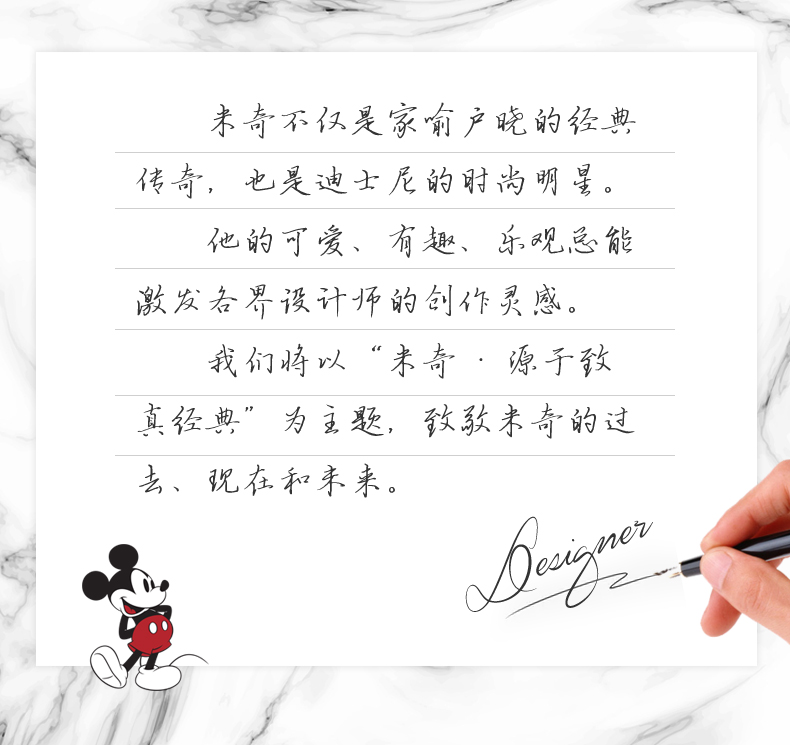 米奇不仅是家喻户晓的经典
传奇，也是迪士尼的时尚明星。
他的可爱、有趣、乐观总能
激发各界设计师的创作灵感。
我们将以“米奇·源于致
真经典”为主题，致敬米奇的过
去、现在和未来。
Designer